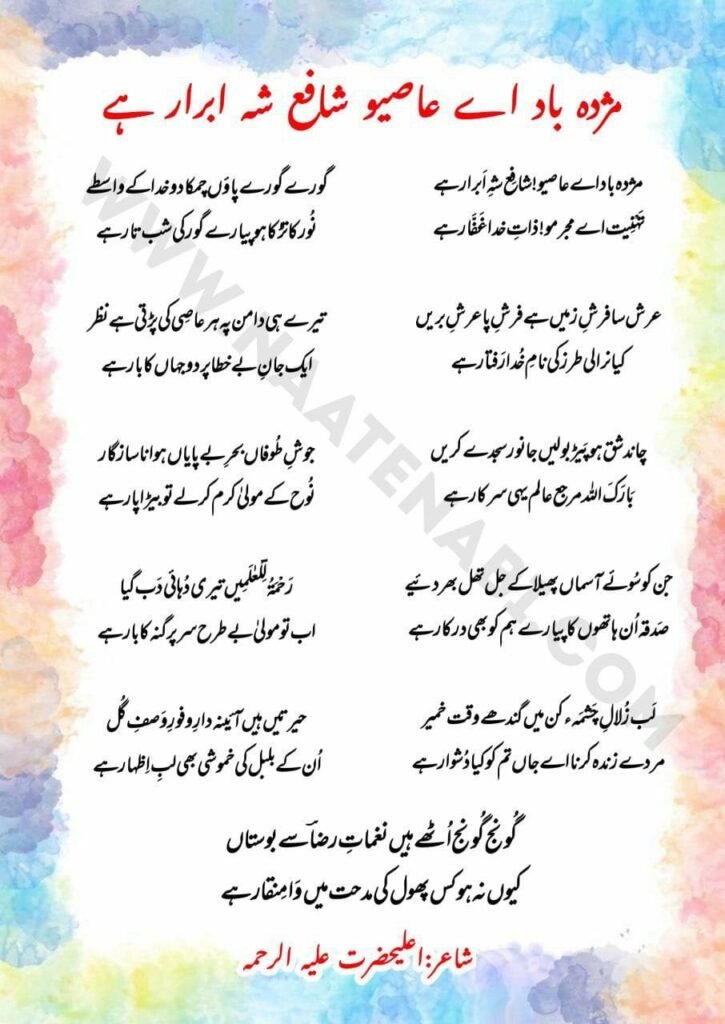 مژدہ باد اے عاصیو شافع شہ ابرار ہے
مژدہ باد اے عاصیو! شافِع شہِ اَبرار ہے
تَہْنِیَت اے مجرمو! ذاتِ خدا غَفَّار ہے
عرش سا فرشِ زمیں ہے فرشِ پا عرشِ بریں
کیا نرالی طرز کی نامِ خُدا رَفتار ہے
چاند شق ہو پَیڑ بولیں جانور سجدے کریں
بَارَکَ اللہ مرجعِ عالم یہی سرکار ہے
جن کو سُوئے آسماں پھیلا کے جل تھل بھر دئیے
صَدقہ اُن ہاتھوں کا پیارے ہم کو بھی درکار ہے
لَب زُلالِ چَشمَۂ کن میں گندھے وقت خمیر
مردے زندہ کرنا اے جاں تم کو کیا دُشوار ہے
گورے گورے پاؤں چمکا دو خدا کے واسطے
نُور کا تڑکا ہو پیارے گور کی شب تار ہے
تیرے ہی دامن پہ ہر عاصی کی پڑتی ہے نظر
ایک جانِ بے خطا پر دو جہاں کا بار ہے
جوشِ طُوفاں بحرِ بے پایاں ہوا ناسازگار
نُوح کے مولیٰ کرم کرلے تو بیڑا پار ہے
رَحْمَۃٌ لِّلْعٰلَمِیں تیری دُہائی دَب گیا
اب تو مولیٰ بے طرح سر پر گنہ کا بار ہے
حیرتیں ہیں آئینہ دارِ وفورِ وَصفِ گُل
اُن کے بلبل کی خموشی بھی لبِ اِظہار ہے
گُونج گُونج اُٹھے ہیں نغماتِ رضاؔ سے بوستاں
کیوں نہ ہو کس پھول کی مدحت میں وَا مِنقار ہے
شاعر:اعلیحضرت علیہ الرحمہ
WWW.NAATENABI.COM